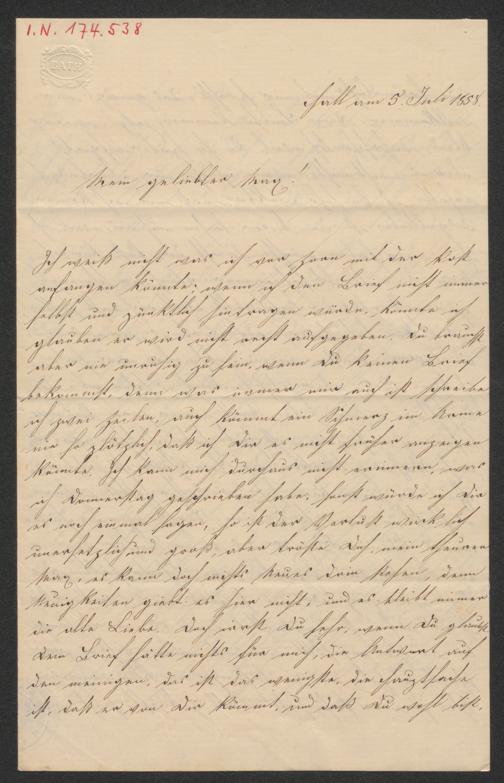 I.N. 174.538
BATH
Hall am 5. Juli 1858.
Mein geliebter Max!
Ich weiß nicht was ich vor Zorn mit der Post
anfangen könnte; wenn ich den Brief nicht immer
selbst und pünktlich hintragen würde, könnte ich
glauben er wird nicht recht aufgegeben. Du brauchst
aber nie unruhig zu sein, wenn Du keinen Brief
bekommst, denn was immer mir auch ist schreibe
ich zwei Zeilen, auch kömmt ein Schmerz im Arme
nie so plötzlich, daß ich Dir es nicht früher anzeigen
könnte. Ich kann mich durchaus nicht erinnern, was
ich Donnerstag geschrieben habe, sonst würde ich Dir
es noch einmal sagen, so ist der Verlust wirklich
unersetzlich und groß, aber tröste Dich, mein theurer
Max, es kann doch nichts Neues drin stehen, denn
Neuigkeiten giebt es hier nicht, und es bleibt immer
die alte Liebe. Doch irrst Du sehr, wenn Du glaubst
Dein Brief hätte nichts für mich, die Antwort auf
den meinigen, das ist das wenigste, die Hauptsache
ist, daß er von Dir kömmt, und daß Du wohl bist.